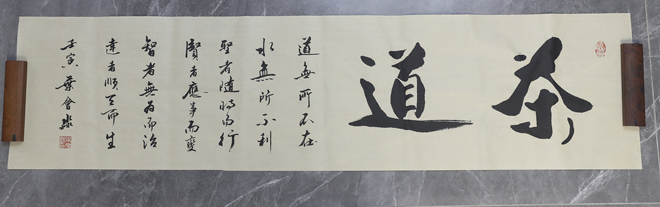 茶道
道無所不在
水無所不利
聖者隨時而行
賢者應事而變
智者無為而治
達者順天而生
壬寅 葉會